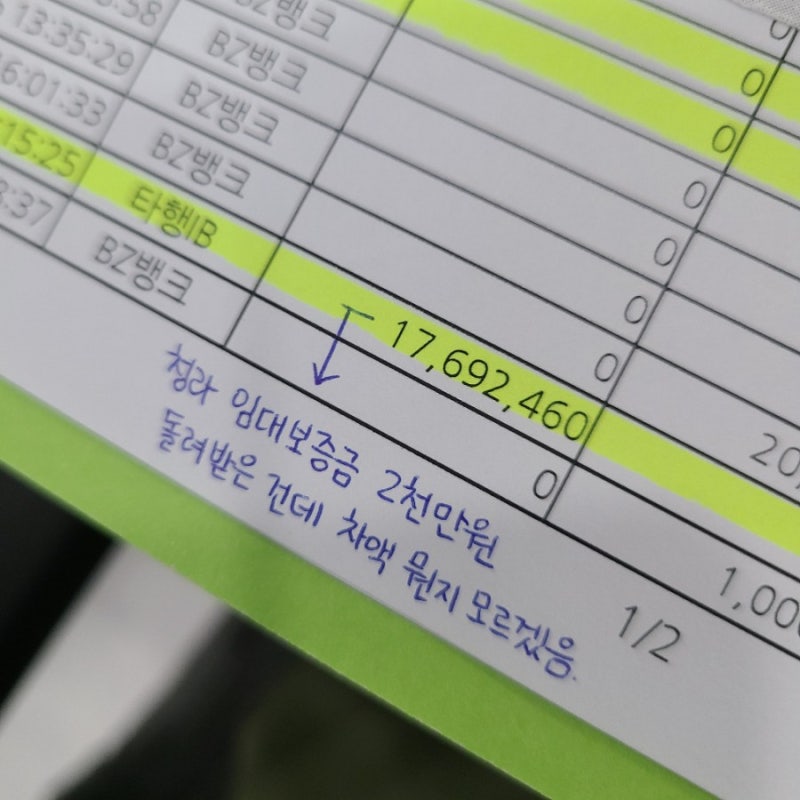 :58 BZ뱅크 0
13:35:29 BZ뱅크 0
6:01:33 BZ뱅크 0
BZ뱅크 0
15:25 타행IB 17,692,460 20,
3:37 BZ뱅크 0 1,000
0
0
0
청라 임대보증금 2천만원
돌려받은 건데 차액 뭔지 모르겠음.
1/2